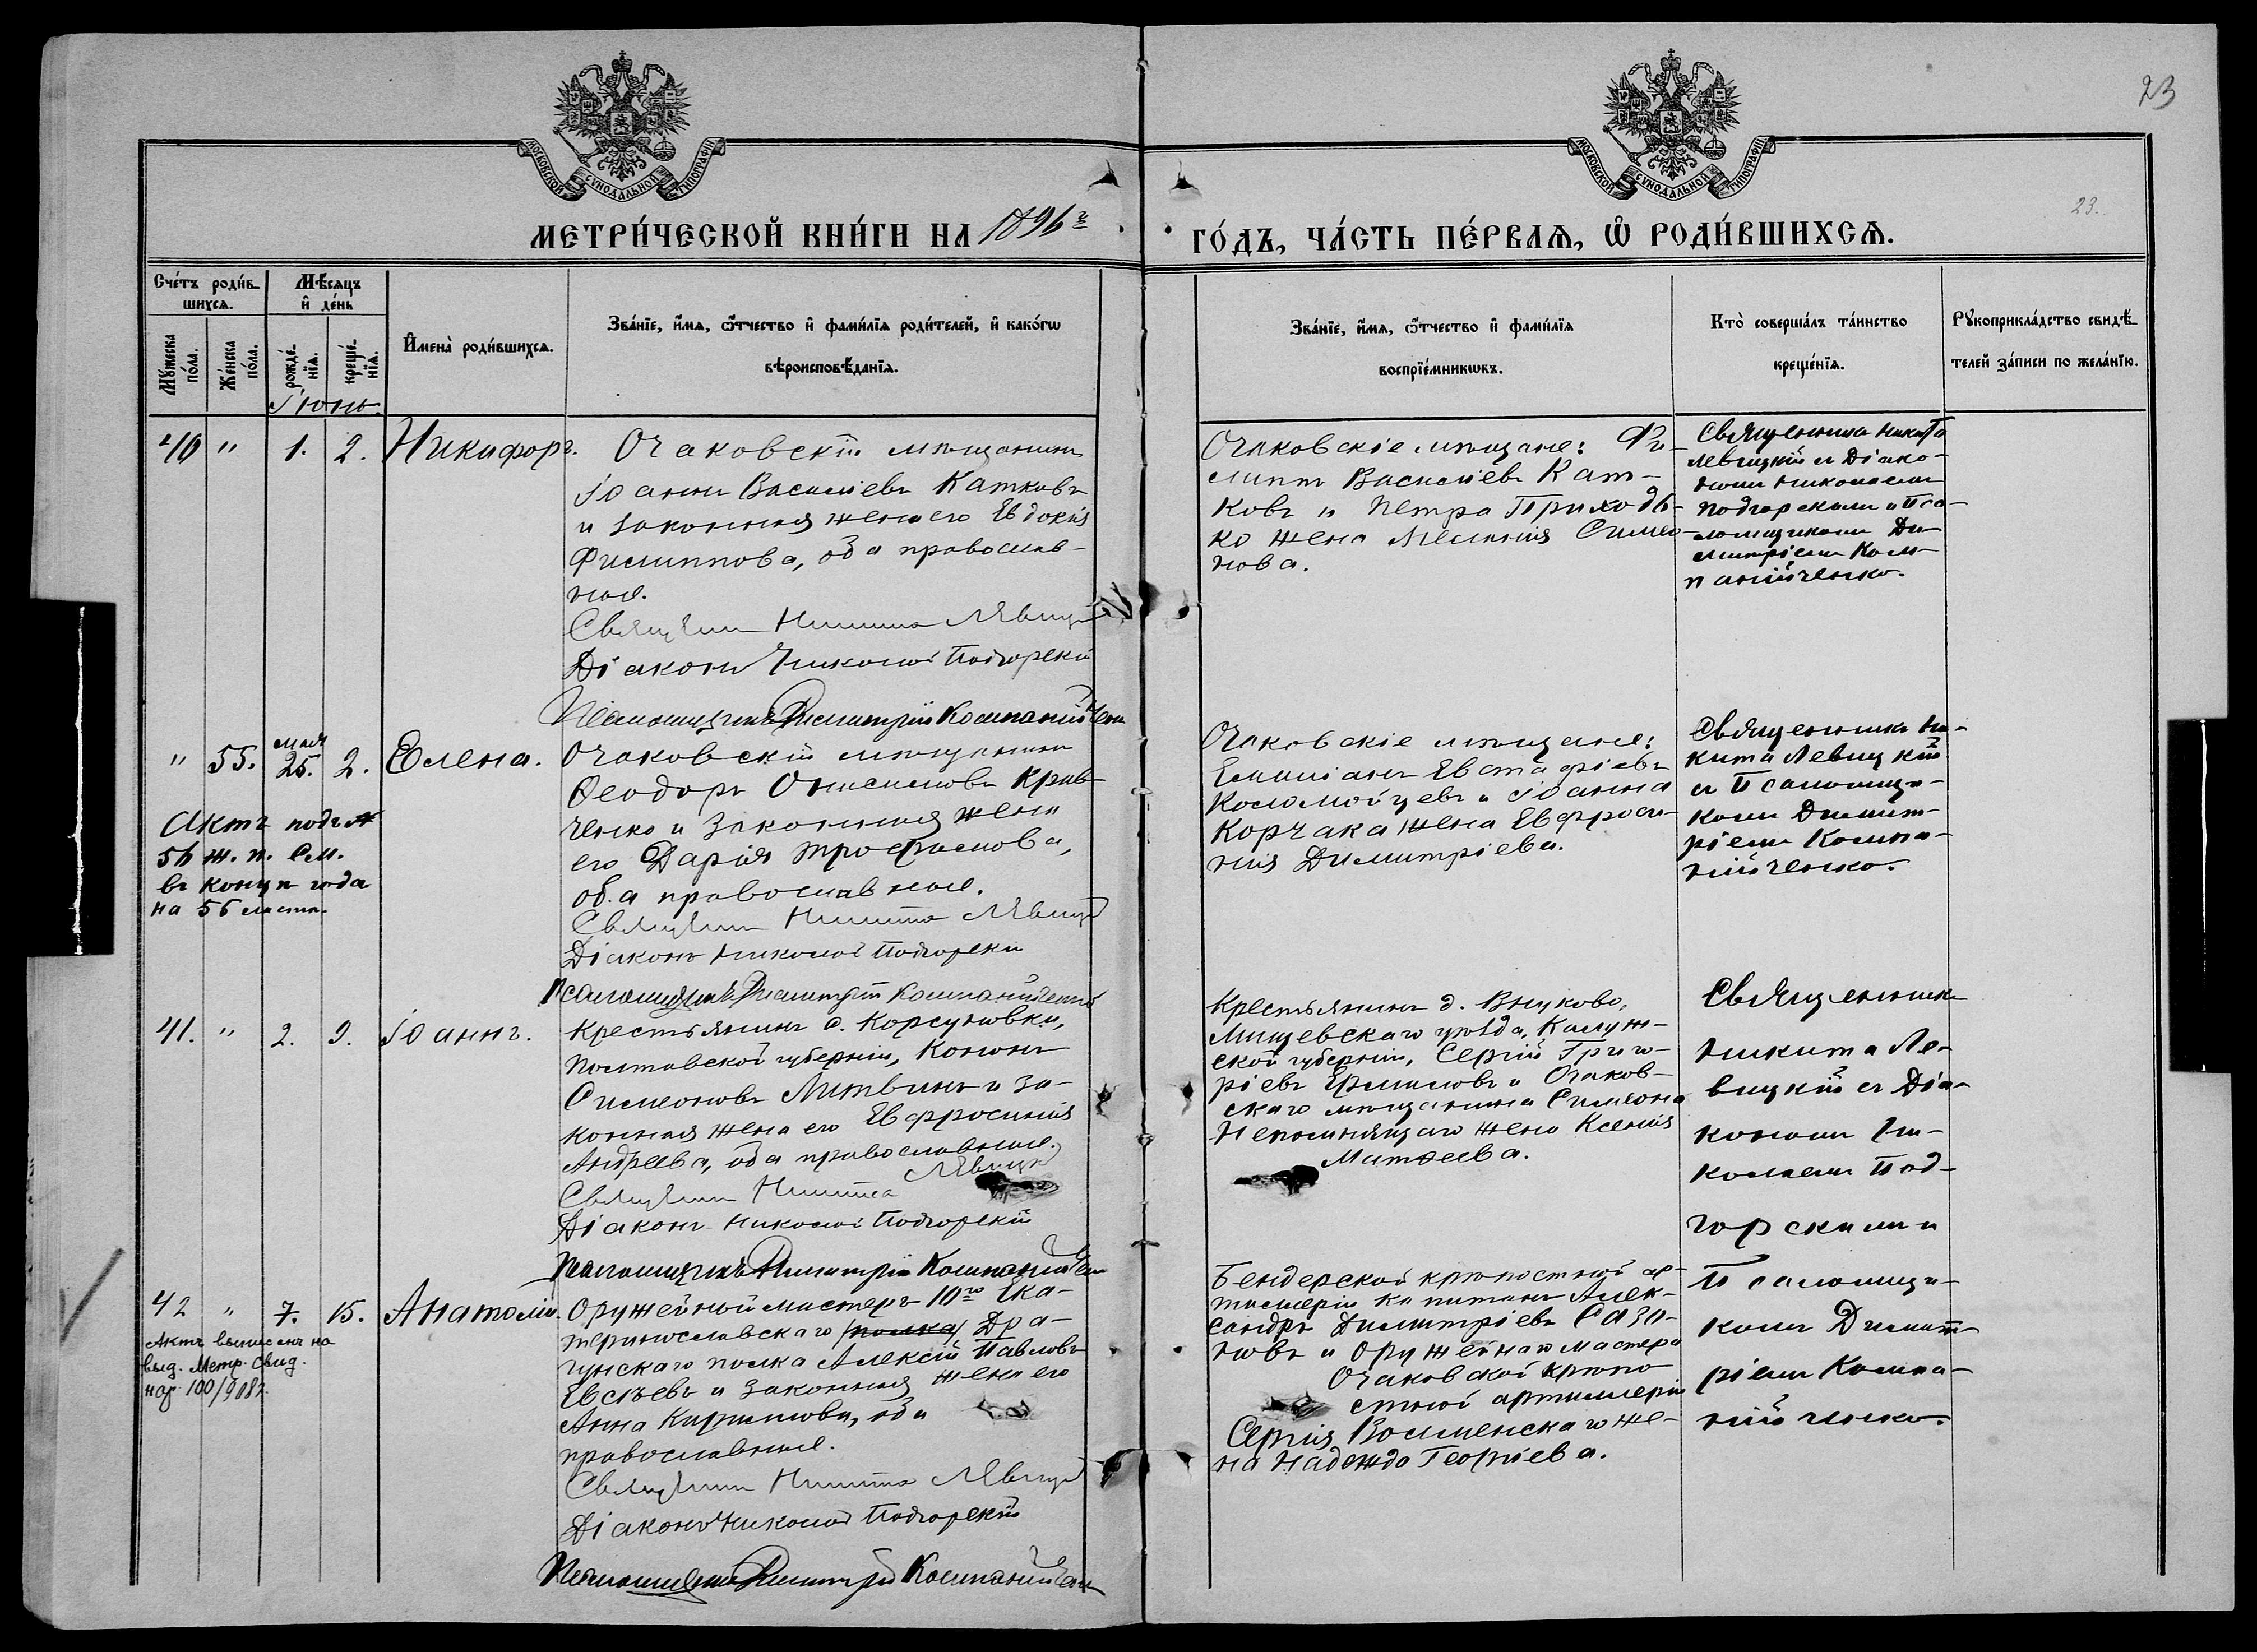 23
23.
МОСКОВСКОЙ СѴНОДАЛЬНОЙ ТИПОГРАФІИ
МОСКОВСКОЙ СѴНОДАЛЬНОЙ ТИПОГРАФІИ
МЕТРИ́ЧЕСКОЙ КНИ́ГИ НА 1896 г
ГО́ДЪ, ЧА́СТЬ ПЕ́РВАѦ, Ѽ РОДИ́ВШИХСѦ.
Сче́тъ роди́в-
шихсѧ.
Мꙋ́жеска
по́ла.
Же́нска
по́ла.
Мѣ́сѧцъ
и҆ де́нь
рожде́-
нїѧ.
креще́-
нїѧ.
И҆мена̀ роди́вшихсѧ.
Зва́нїе, и҆́мѧ, ѻ҆́тчество и҆ фами́лїѧ роди́телей, и҆ како́гѡ
вѣроисповѣ́данїѧ.
Зва́нїе, и҆́мѧ, ѻ҆́тчество и҆ фами́лїѧ
воспрїе́мникѡвъ.
Кто̀ соверша́лъ та́инство
креще́нїѧ.
Рꙋкоприкла́дство свидѣ́-
телей за́писи по жела́нїю.
Іюнь.
40 " 1. 2. Никифоръ.
Очаковскій мѣщанинъ
Іоаннъ Василіевъ Катковъ
и законная жена его Евдокія
Филиппова, оба православ-
ные.
Священникъ Никита Левицкій
Діаконъ Николай Подгорскій
Псаломщикъ Димитрій Компанійченко
Очаковскіе мѣщане: Фи-
липпъ Василіевъ Кат-
ковъ и Петра Приходь-
ко жена Меланія Симео-
нова.
Священникъ Никита
Левицкій съ Діако-
номъ Николаемъ
Подгорскимъ и Пса-
ломщикомъ Ди-
митріемъ Ком-
панійченко.
" 55. мая 25. 2. Елена.
Актъ подъ №
56 ж. п. См.
въ концѣ года
на 56 листѣ.
Очаковскій мѣщанинъ
Ѳеодоръ Онисимовъ Крив-
ченко и законная жена
его Дарія Трофимова,
оба православные.
Священникъ Никита Левицкій
Діаконъ Николай Подгорскій
Псаломщикъ Димитрій Компанійченко
Очаковскіе мѣщане:
Емиліанъ Евстафіевъ
Коломойцевъ и Іоанна
Корчака жена Евфроси-
нія Димитріева.
Священникъ Ни-
кита Левицкій
съ Псаломщи-
комъ Димит-
ріемъ Компа-
нійченко.
41. " 2. 9. Іоаннъ.
Крестьянинъ с. Корсуновки,
Полтавской губерніи, Кононъ
Симеоновъ Литвинъ и за-
конная жена его Евфросинія
Андреева, оба православные.
Священникъ Никита Левицкій
Діаконъ Николай Подгорскій
Псаломщикъ Димитрій Компанійченко
Крестьянинъ д. Внуково,
Мищевскаго уѣзда, Калуж-
ской губерніи, Сергій Григо-
ріевъ Ермиловъ и Очаков-
скаго мѣщанина Симеона
Непомнящаго жена Ксенія
Матѳеева.
Священникъ
Никита Ле-
вицкій съ Діа-
кономъ Ни-
колаемъ Под-
горскимъ и
Псаломщи-
комъ Димит-
ріемъ Компа-
нійченко.
42 " 7. 15. Анатолій.
Актъ выписанъ на
выд. Метр. Свид.
нар. 100/908 г.
Оружейный мастеръ 10го Ека-
теринославскаго (полка) Дра-
гунскаго полка Алексій Павловъ
Евсѣевъ и законная жена его
Анна Кириллова, оба
православные.
Священникъ Никита Левицкій
Діаконъ Николай Подгорскій
Псаломщикъ Димитрій Компанійченко
Бендерской крѣпостной ар-
тиллеріи капитанъ Алек-
сандръ Димитріевъ Саза-
новъ и оружейнаго мастера
Очаковской крѣпо-
стной артиллеріи
Сергія Волменскаго же-
на Надежда Георгіева.